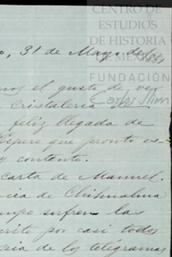 CENTRO DE
ESTUDIOS
DE HISTORIA
DE MÉXICO
FUNDACIÓN
Carlos Slim
31 de Mayo de
el gusto de ver
Cristalería
feliz llegada de
espero que pronto es
y contento.
carta de Manuel.
cia de Chihuahua
sufren las
crito por casi todos
cia de los telégramas